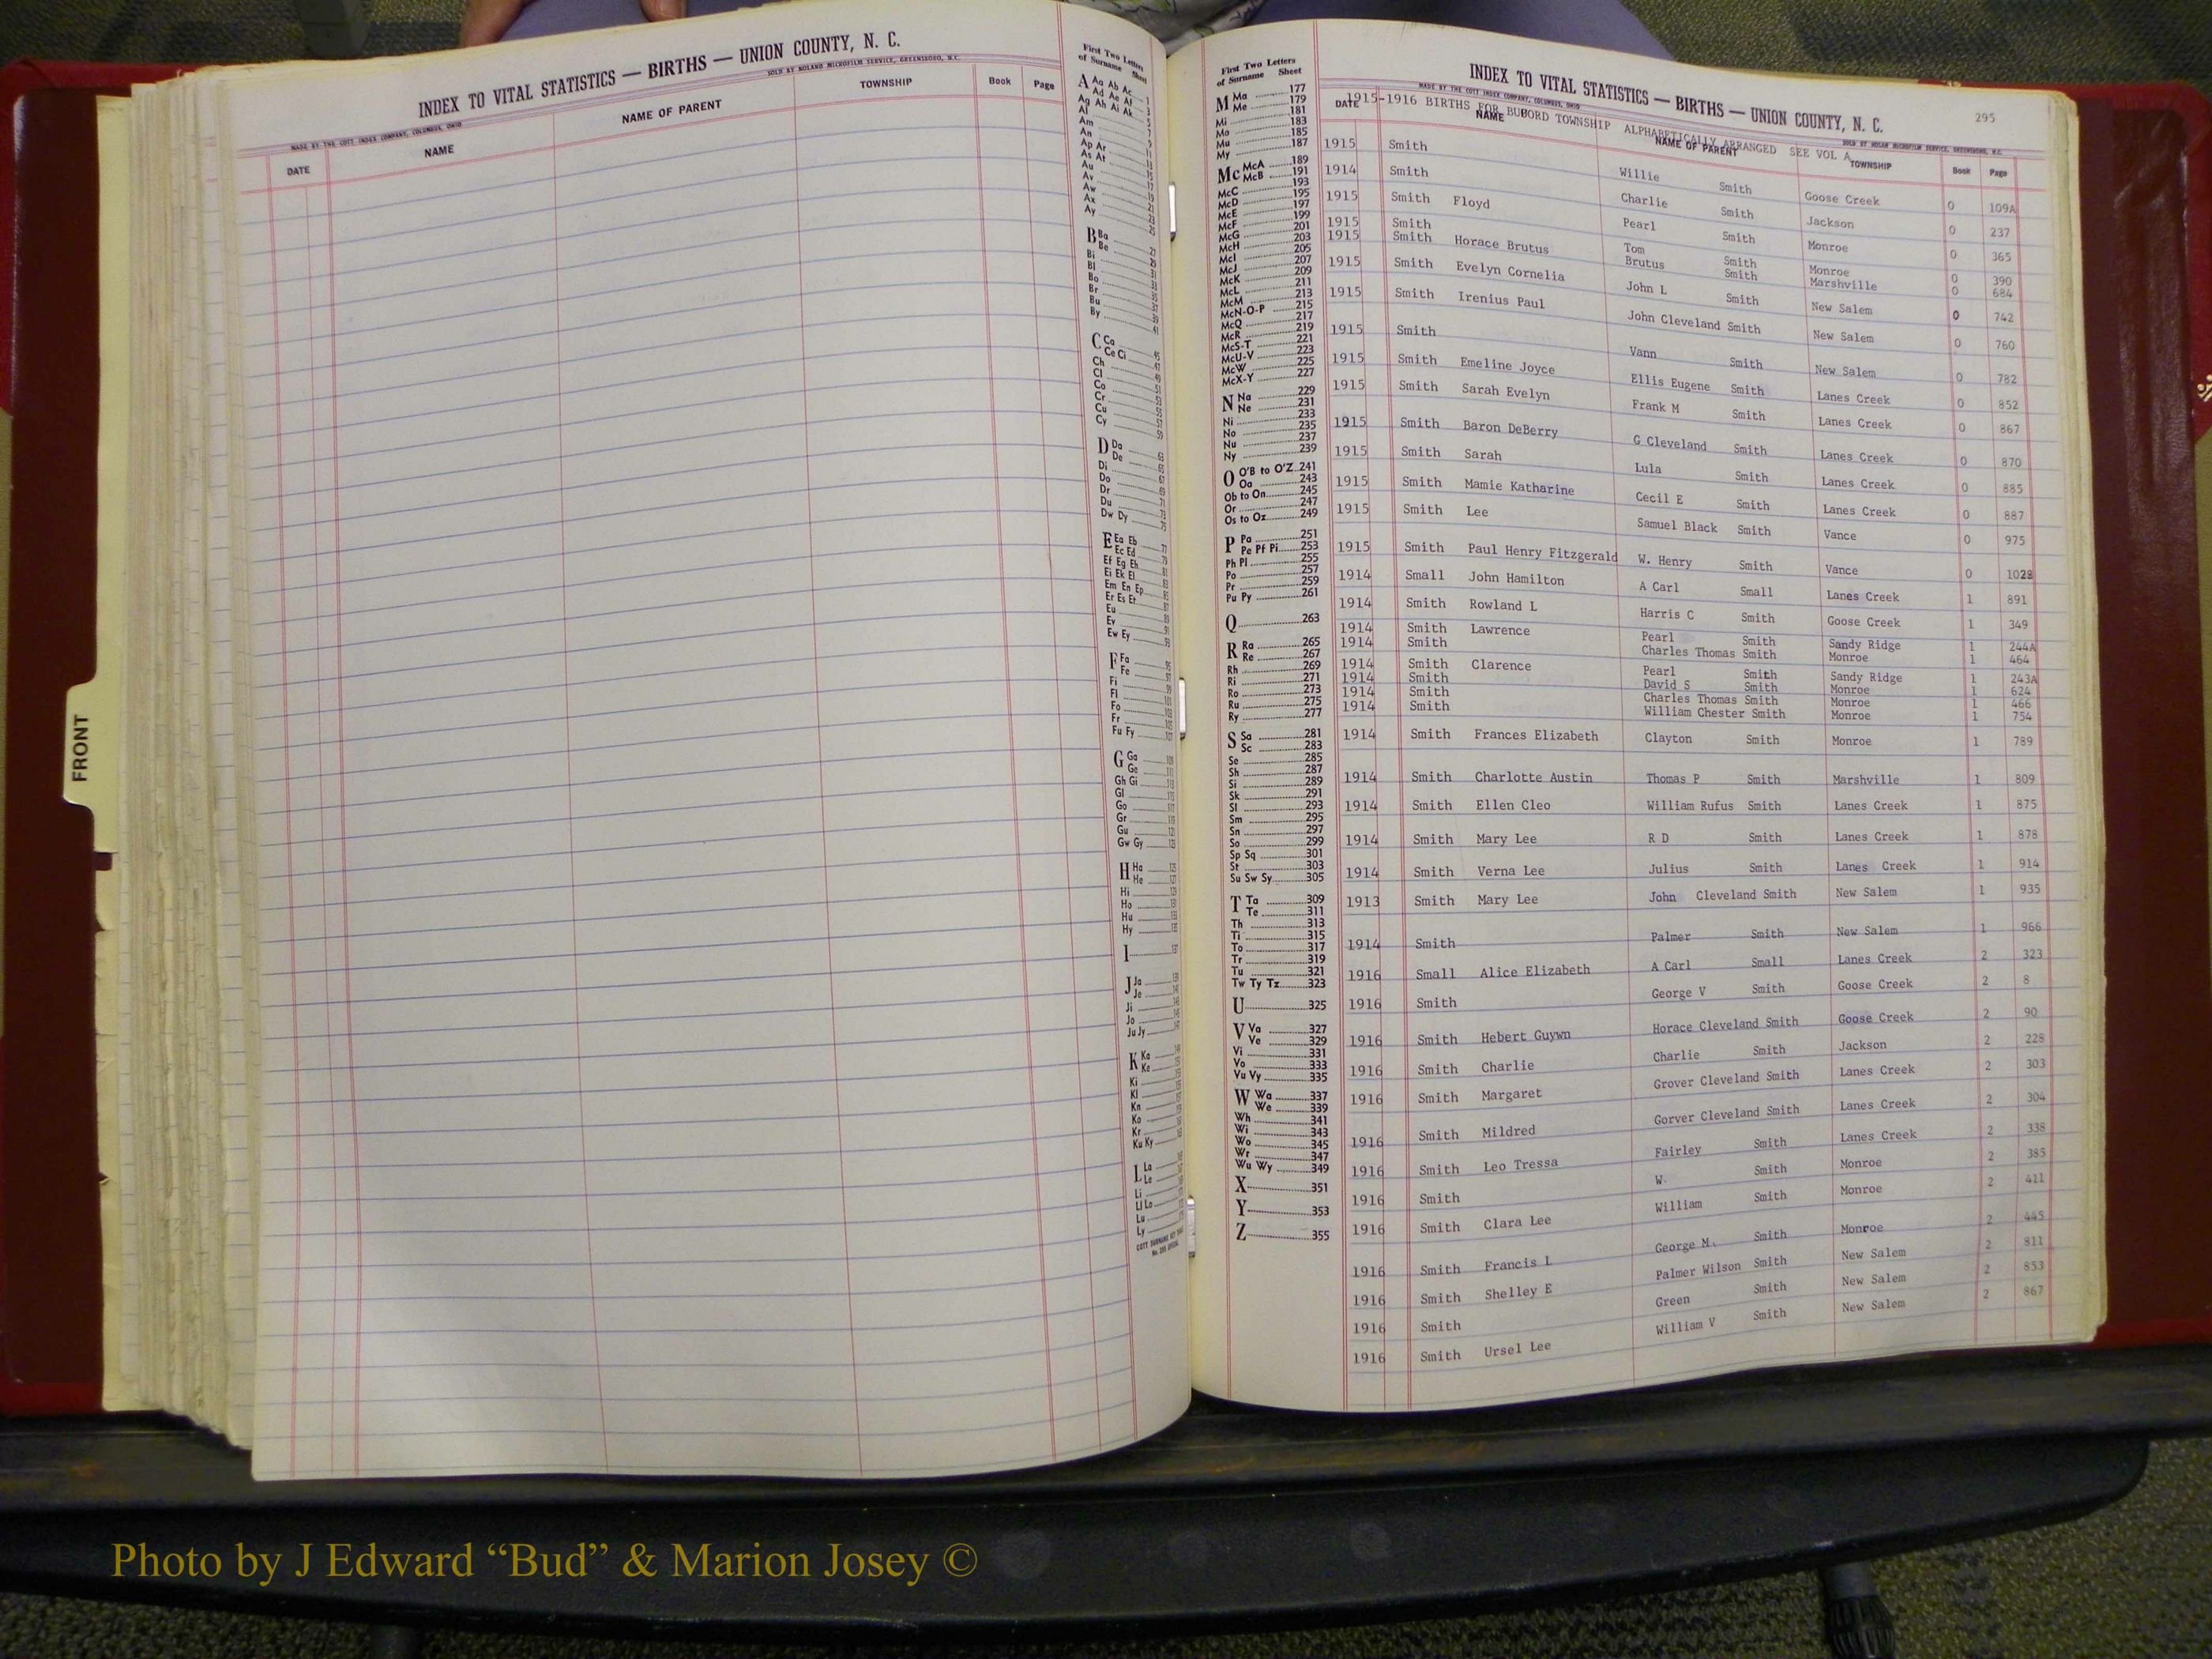 FRONT
INDEX TO VITAL STATISTICS — BIRTHS — UNION COUNTY, N. C.
MADE BY THE COTT INDEX COMPANY, COLUMBUS, OHIO SOLD BY NOLAND MICROFILM SERVICE, GREENSBORO, N.C.
DATE NAME NAME OF PARENT TOWNSHIP Book Page
First Two Letters
of Surname Sheet
A Aa Ab Ac
Ad Ae Af
Ag Ah Ai Ak
Al
Am
An
Ap Ar
As At
Au
Av
Aw
Ax
Ay
B Ba
Be
Bi
Bl
Bo
Br
Bu
By
C Ca
Ce Ci
Ch
Cl
Co
Cr
Cu
Cy
D Da
De
Di
Do
Dr
Du
Dw Dy
E Ea Eb
Ec Ed
Ef Eg Eh
Ei Ek El
Em En Ep
Er Es Et
Eu
Ev
Ew Ey
F Fa
Fe
Fi
Fl
Fo
Fr
Fu Fy
G Ga
Ge
Gh Gi
Gl
Go
Gr
Gu
Gw Gy
H Ha
He
Hi
Ho
Hu
Hy
I
J Ja
Je
Ji
Jo
Ju Jy
K Ka
Ke
Ki
Kl
Kn
Ko
Kr
Ku Ky
L La
Le
Li
Ll Lo
Lu
Ly
First Two Letters
of Surname Sheet
M Ma 177
Me 179
Mi 181
Mo 183
Mu 185
My 187
Mc McA 189
McB 191
McC 193
McD 195
McE 197
McF 199
McG 201
McH 203
McI 205
McJ 207
McK 209
McL 211
McM 213
McN-O-P 215
McQ 217
McR 219
McS-T 221
McU-V 223
McW 225
McX-Y 227
N Na 229
Ne 231
Ni 233
No 235
Nu 237
Ny 239
O O'B to O'Z 241
Oa 243
Ob to On 245
Or 247
Os to Oz 249
P Pa 251
Pe Pf Pi 253
Ph Pl 255
Po 257
Pr 259
Pu Py 261
Q 263
R Ra 265
Re 267
Rh 269
Ri 271
Ro 273
Ru 275
Ry 277
S Sa 281
Sc 283
Se 285
Sh 287
Si 289
Sk 291
Sl 293
Sm 295
Sn 297
So 299
Sp Sq 301
St 303
Su Sw Sy 305
T Ta 309
Te 311
Th 313
Ti 315
To 317
Tr 319
Tu 321
Tw Ty Tz 323
U 325
V Va 327
Ve 329
Vi 331
Vo 333
Vu Vy 335
W Wa 337
We 339
Wh 341
Wi 343
Wo 345
Wr 347
Wu Wy 349
X 351
Y 353
Z 355
INDEX TO VITAL STATISTICS — BIRTHS — UNION COUNTY, N. C. 295
MADE BY THE COTT INDEX COMPANY, COLUMBUS, OHIO SOLD BY NOLAN MICROFILM SERVICE, GREENSBORO, N. C.
1915-1916 BIRTHS FOR BUFORD TOWNSHIP ALPHABETICALLY ARRANGED SEE VOL A
DATE NAME NAME OF PARENT TOWNSHIP Book Page
1915 Smith Willie Smith Goose Creek 0 109A
1914 Smith Charlie Smith Jackson 0 237
1915 Smith Floyd Pearl Smith Monroe 0 365
1915 Smith Tom Smith Monroe 0 390
1915 Smith Horace Brutus Brutus Smith Marshville 0 684
1915 Smith Evelyn Cornelia John L Smith New Salem 0 742
1915 Smith Irenius Paul John Cleveland Smith New Salem 0 760
1915 Smith Vann Smith New Salem 0 782
1915 Smith Emeline Joyce Ellis Eugene Smith Lanes Creek 0 852
1915 Smith Sarah Evelyn Frank M Smith Lanes Creek 0 867
1915 Smith Baron DeBerry G Cleveland Smith Lanes Creek 0 870
1915 Smith Sarah Lula Smith Lanes Creek 0 885
1915 Smith Mamie Katharine Cecil E Smith Lanes Creek 0 887
1915 Smith Lee Samuel Black Smith Vance 0 975
1915 Smith Paul Henry Fitzgerald W. Henry Smith Vance 0 1028
1914 Small John Hamilton A Carl Small Lanes Creek 1 891
1914 Smith Rowland L Harris C Smith Goose Creek 1 349
1914 Smith Lawrence Pearl Smith Sandy Ridge 1 244A
1914 Smith Charles Thomas Smith Monroe 1 464
1914 Smith Clarence Pearl Smith Sandy Ridge 1 243A
1914 Smith David S Smith Monroe 1 624
1914 Smith Charles Thomas Smith Monroe 1 466
1914 Smith William Chester Smith Monroe 1 754
1914 Smith Frances Elizabeth Clayton Smith Monroe 1 789
1914 Smith Charlotte Austin Thomas P Smith Marshville 1 809
1914 Smith Ellen Cleo William Rufus Smith Lanes Creek 1 875
1914 Smith Mary Lee R D Smith Lanes Creek 1 878
1914 Smith Verna Lee Julius Smith Lanes Creek 1 914
1913 Smith Mary Lee John Cleveland Smith New Salem 1 935
1914 Smith Palmer Smith New Salem 1 966
1916 Small Alice Elizabeth A Carl Small Lanes Creek 2 323
1916 Smith George V Smith Goose Creek 2 8
1916 Smith Hebert Guywn Horace Cleveland Smith Goose Creek 2 90
1916 Smith Charlie Charlie Smith Jackson 2 228
1916 Smith Margaret Grover Cleveland Smith Lanes Creek 2 303
1916 Smith Mildred Gorver Cleveland Smith Lanes Creek 2 304
1916 Smith Leo Tressa Fairley Smith Lanes Creek 2 338
1916 Smith W. Smith Monroe 2 385
1916 Smith Clara Lee William Smith Monroe 2 411
1916 Smith Francis L George M. Smith Monroe 2 445
1916 Smith Shelley E Palmer Wilson Smith New Salem 2 811
1916 Smith Green Smith New Salem 2 853
1916 Smith Ursel Lee William V Smith New Salem 2 867
Photo by J Edward “Bud” & Marion Josey ©